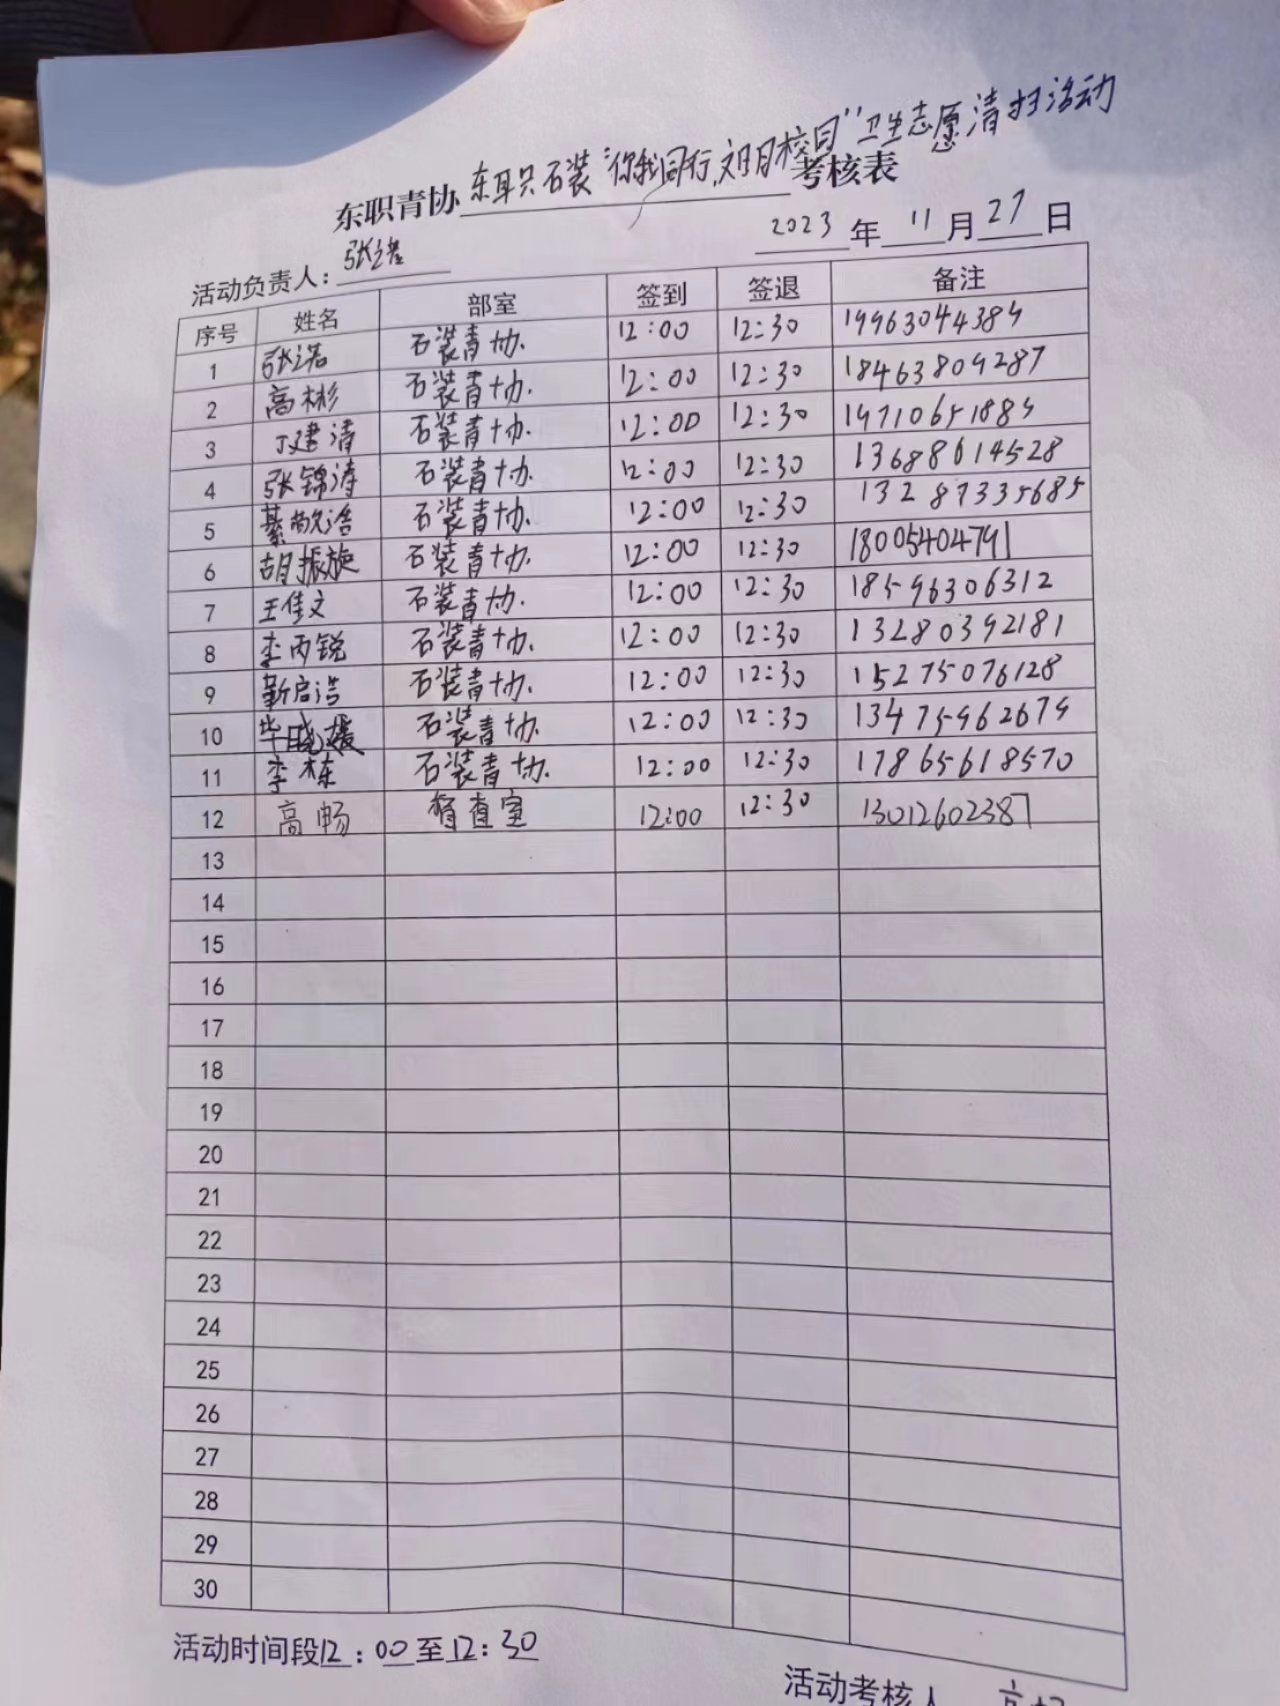 东职青协 东职石装"你我同行,文明校园"卫生志愿清扫活动 考核表
2023 年 11 月 27 日
活动负责人: 张诺
序号 姓名 部室 签到 签退 备注
1 张诺 石装青协. 12:00 12:30 19963044389
2 高彬 石装青协. 12:00 12:30 18463809287
3 丁建清 石装青协. 12:00 12:30 19710651889
4 张锦涛 石装青协. 12:00 12:30 13688614528
5 綦敬浩 石装青协. 12:00 12:30 13287335685
6 胡振旋 石装青协. 12:00 12:30 18005404791
7 王佳文 石装青协. 12:00 12:30 18596306312
8 李丙锐 石装青协. 12:00 12:30 13280392181
9 靳启浩 石装青协. 12:00 12:30 15275076128
10 毕晓媛 石装青协. 12:00 12:30 13475962679
11 李栋 石装青协. 12:00 12:30 17865618570
12 高畅 督查室 12:00 12:30 13012602387
13
14
15
16
17
18
19
20
21
22
23
24
25
26
27
28
29
30
活动时间段12:00至12:30
活动考核人